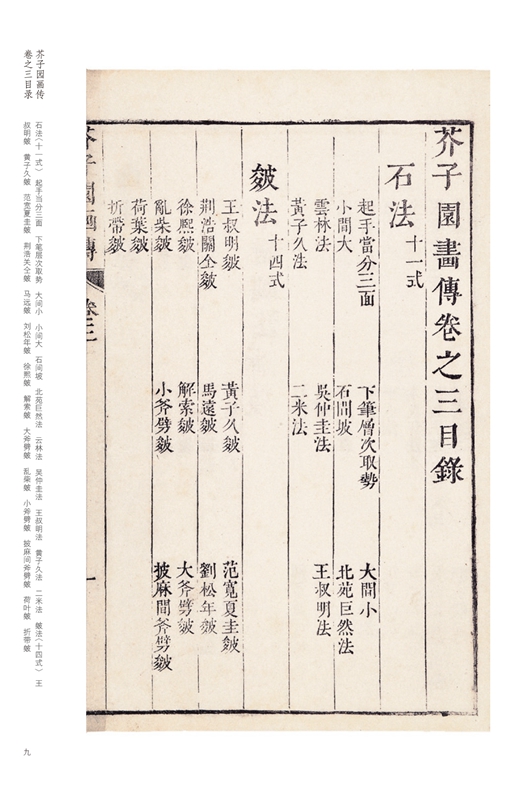 芥子園畫傳卷之三目錄
石法 十一式
起手當分三面 下筆層次取勢 大間小
小間大 石間坡 北苑巨然法
雲林法 吳仲圭法 王叔明法
黃子久法 二米法
皴法 十四式
王叔明皴 黃子久皴 范寬夏圭皴
荆浩關仝皴 馬遠皴 劉松年皴
徐熙皴 解索皴 大斧劈皴
亂柴皴 小斧劈皴 披麻間斧劈皴
荷葉皴
折帶皴
芥子園畫傳 卷三 一
芥子园画传
卷之三目录
石法（十一式） 起手当分三面 下笔层次取势 大间小 小间大 石间坡 北苑巨然法 云林法 吴仲圭法 王叔明法 黄子久法 二米法 皴法（十四式） 王
叔明皴 黄子久皴 范宽夏圭皴 荆浩关仝皴 马远皴 刘松年皴 徐熙皴 解索皴 大斧劈皴 乱柴皴 小斧劈皴 披麻间斧劈皴 荷叶皴 折带皴
九